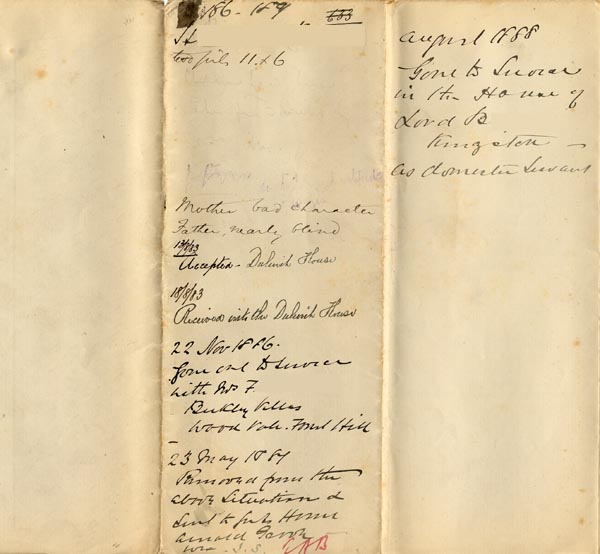 186 - 189
683
H
two girls 11 & 6
Mother bad character
Father, nearly blind
Accepted - Dulwich House
18/8/83
Received into the Dulwich House
22 Nov 1886.
Gone out to Service
with Mrs F.
Villas
Wood Vale. Forest Hill
23 May 1887
Removed from the
above Situation &
Sent to Girls Home
August 1888
Gone to Service
in the House of
Lord B
Kingston -
as domestic Servant